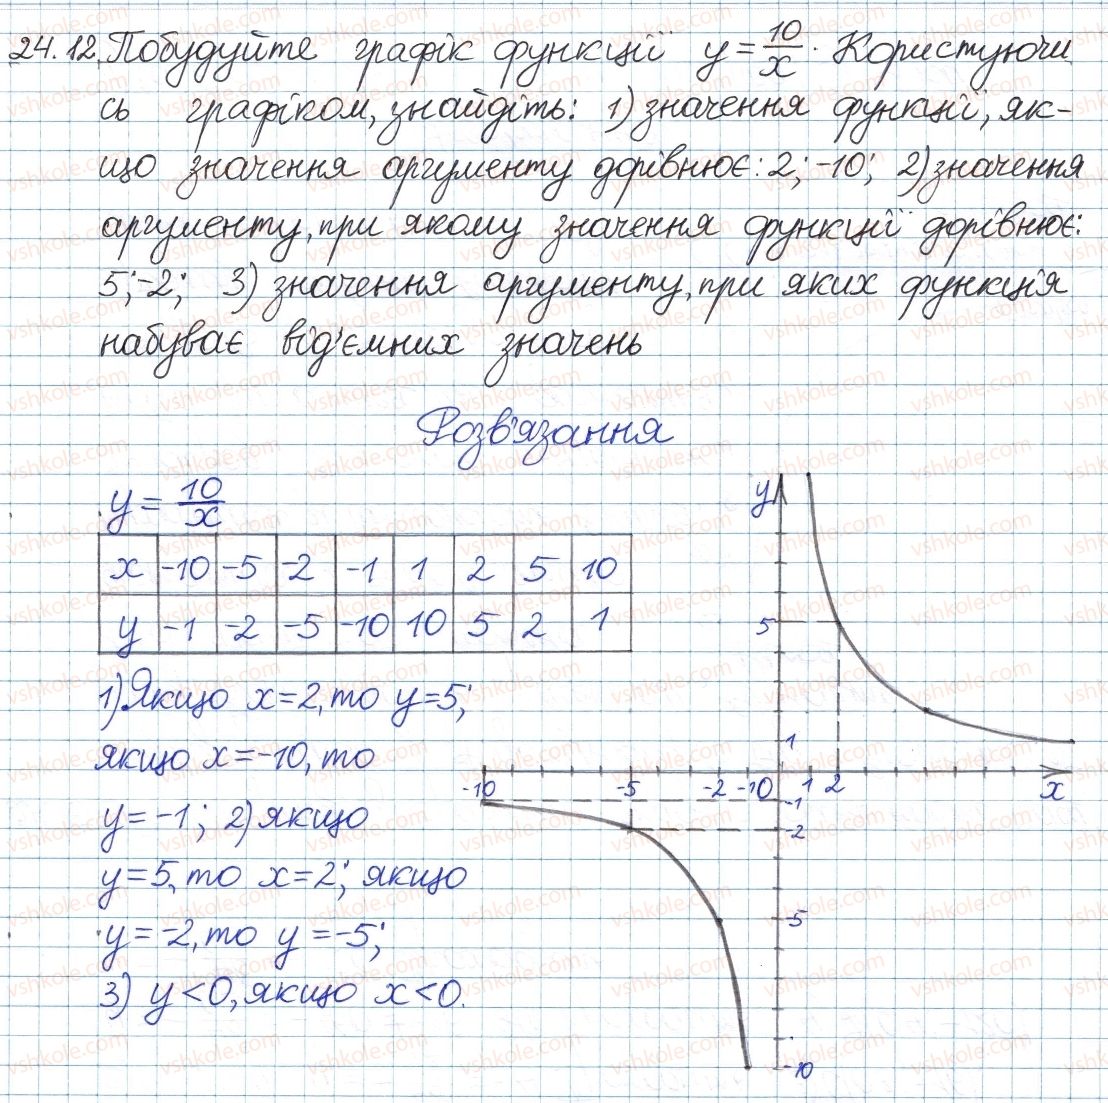 24.12. Побудуйте графік функції y = 10/x. Користуючи
сь графіком, знайдіть: 1) значення функції, як-
що значення аргументу дорівнює: 2; -10; 2) значення
аргументу, при якому значення функції дорівнює:
5; -2; 3) значення аргументу, при яких функція
набуває від'ємних значень
Розв'язання
y = 10/x
x -10 -5 -2 -1 1 2 5 10
y -1 -2 -5 -10 10 5 2 1
1) Якщо x=2, то y=5;
якщо x=-10, то
y=-1; 2) якщо
y=5, то x=2; якщо
y=-2, то y=-5;
3) y<0, якщо x<0.
y
5
1
-10 -5 -2 -1 0 1 2 x
-1
-2
-5
-10
vshkole.com